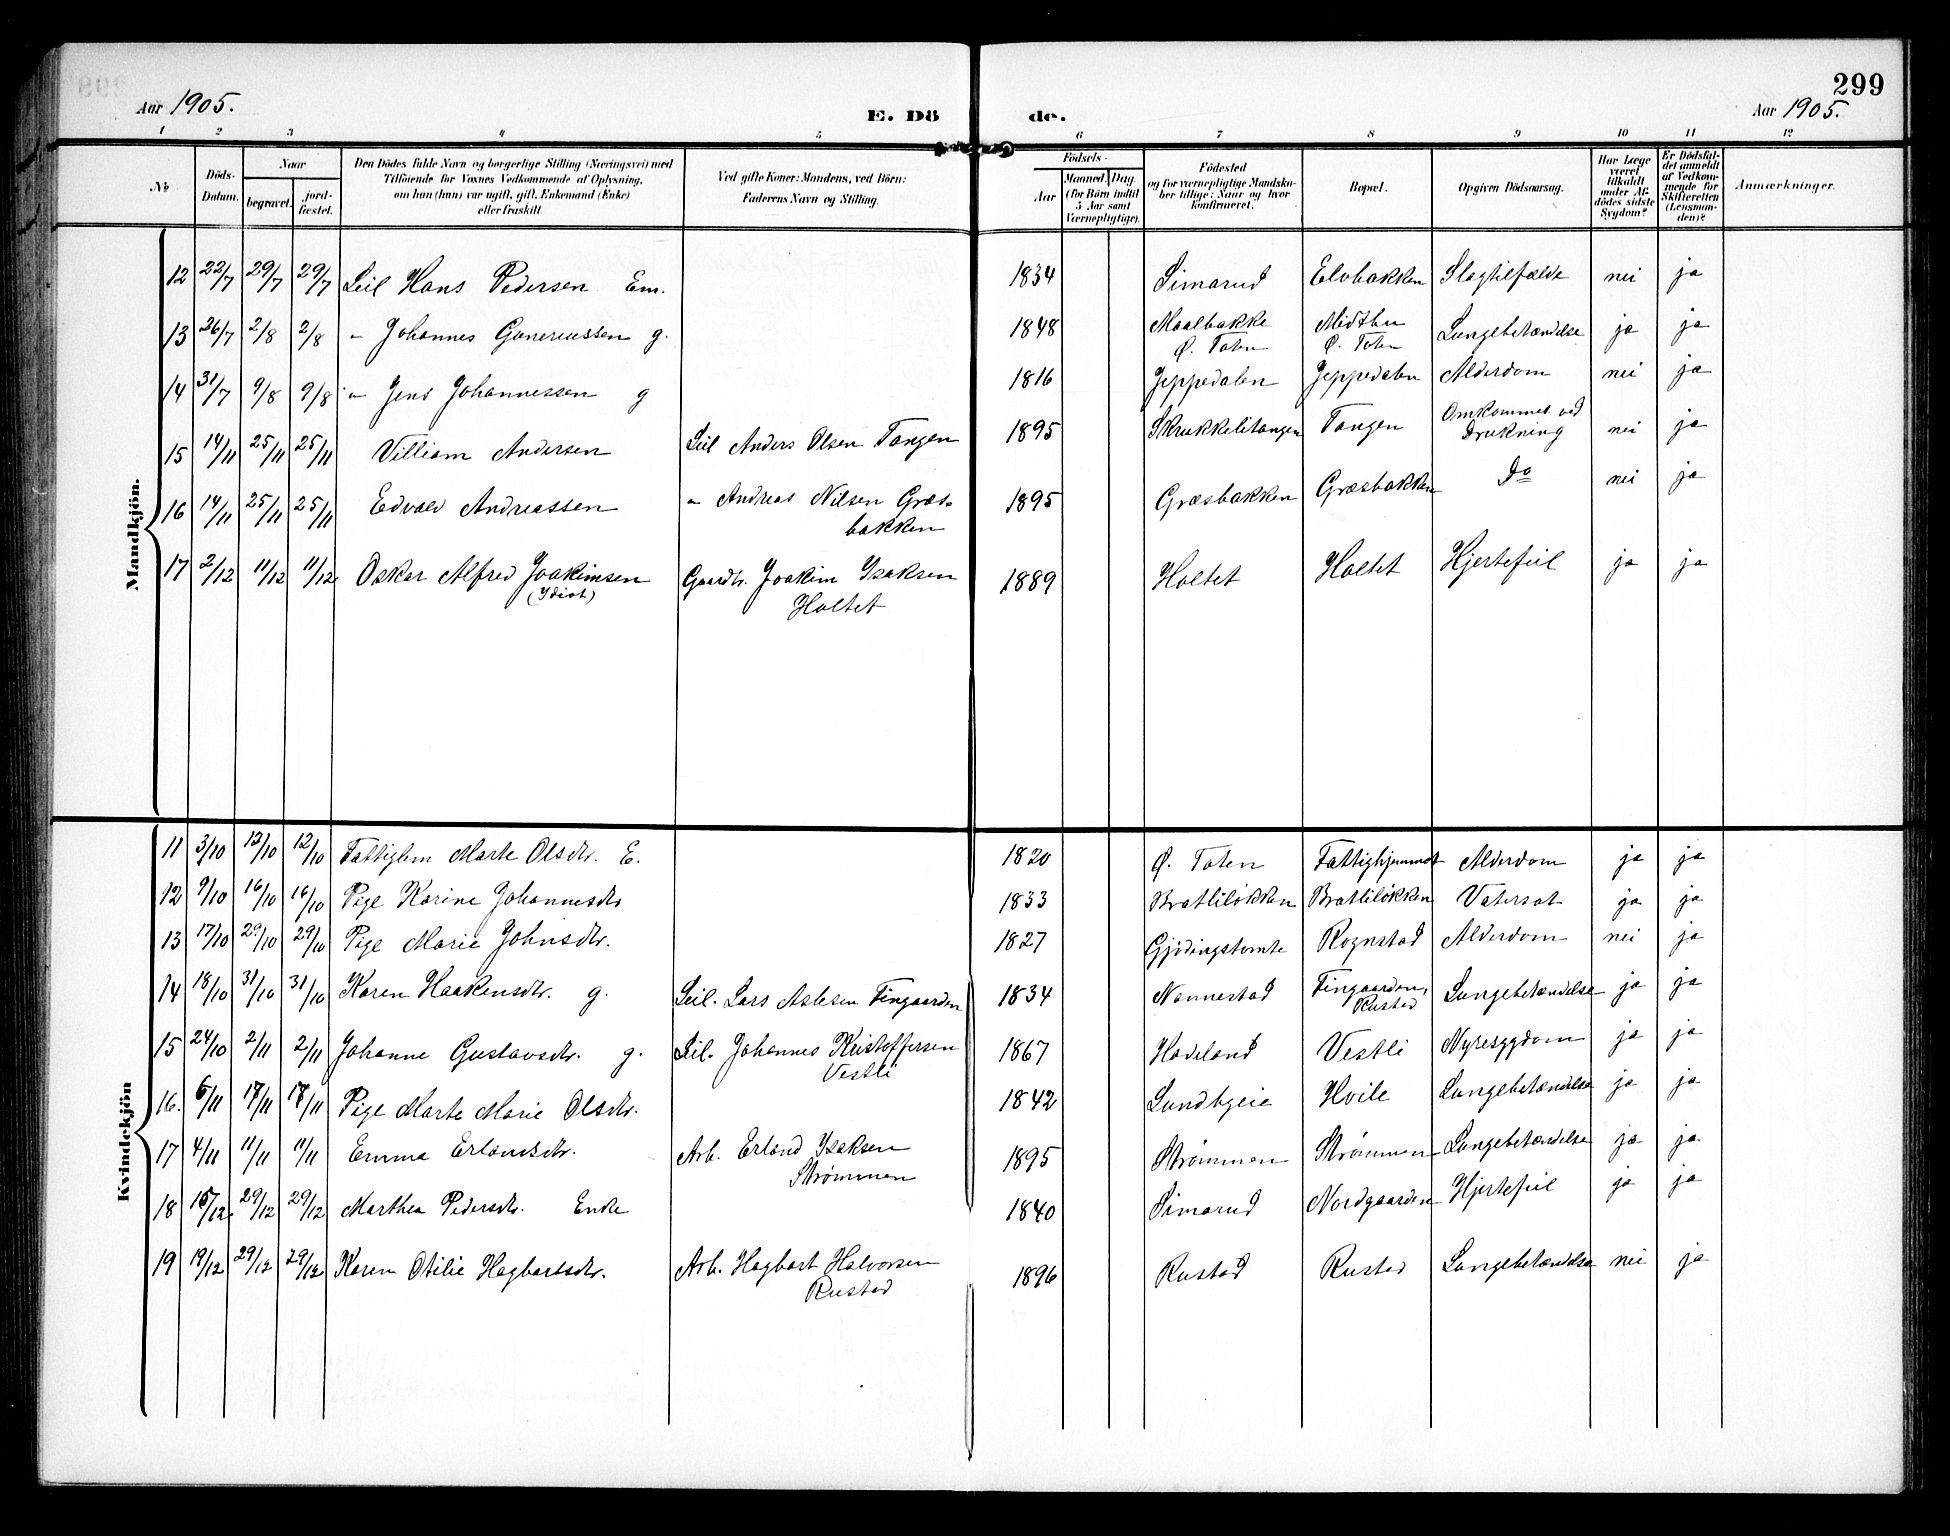 299
Aar 1905.
E. Dö de.
Aar 1905.
1 2 3 4 5 6 7 8 9 10 11 12
No
Döds-Datum.
Naar
begravet.
jord-fæstet.
Den Dödes fulde Navn og borgerlige Stilling (Næringsvei) med
Tilföiende for Voxnes Vedkommende af Oplysning,
om han (hun) var ugift, gift, Enkemand (Enke)
eller fraskilt.
Ved gifte Koner: Mandens, ved Börn:
Faderens Navn og Stilling.
Födsels-
Aar
Maaned. Dag.
(for Börn indtil
5 Aar samt
Værnepligtige).
Födested
og for værnepligtige Mandska-
ber tillige: Naar og hvor
konfirmeret.
Bopæl.
Opgiven Dödsaarsag.
Har Læge
været
tilkaldt
under Af-
dödes sidste
Sygdom?
Er Dödsfal-
det anmeldt
af Vedkom-
mende for
Skifteretten
(Lensman-
den)?
Anmærkninger.
Mandkjön.
12 22/7 29/7 29/7 Seil Hans Pedersen Em. 1834 Simarud Elvbakken Slagtilfælde nei ja
13 26/7 2/8 2/8 " Johannes Gunerussen g. 1848 Maalbakke Ø. Toten Midtbu Ø. Toten Lungebetændelse ja ja
14 31/7 9/8 9/8 " Jens Johannessen g 1816 Jeppedalen Jeppedalen Alderdom nei ja
15 14/11 25/11 25/11 Villiam Andersen Seil Anders Olsen Tangen 1895 Skrukkelitangen Tangen Omkommet ved Drukning nei ja
16 14/11 25/11 25/11 Edvald Andreassen " Andreas Nilsen Græs-
bakken 1895 Græsbakken Græsbakken Do nei ja
17 2/12 11/12 11/12 Oskar Alfred Joakimsen (Idiot) Gaardbr. Joakim Isaksen
Holtet 1889 Holtet Holtet Hjertefeil ja ja
Kvindekjön
11 3/10 12/10 12/10 Fattiglem Marte Olsdtr. E. 1820 Ø. Toten Fattighjemmet Alderdom ja ja
12 9/10 16/10 16/10 Pige Karine Johannesdtr 1833 Brattliløkken Brattliløkken Vatersot ja ja
13 17/10 29/10 29/10 Pige Marie Johnsdtr. 1827 Gjødingstomte Rognstad Alderdom nei ja
14 18/10 31/10 31/10 Karen Haakensdtr. g. Seil. Lars Aslesen Fingaarden 1834 Nannestad Fingaarden, Rustad Lungebetændelse ja ja
15 24/10 2/11 2/11 Johanne Gustavsdtr. g. Seil. Johannes Kristoffersen
Vestli 1867 Hadeland Vestli Nyresygdom ja ja
16. 6/11 17/11 17/11 Pige Marte Marie Olsdtr. 1842 Sundbyeie Hvile Lungebetændelse ja ja
17 4/11 11/11 11/11 Emma Erlandsdtr. Arb. Erland Isaksen
Strømmen 1895 Strømmen Strømmen Lungebetændelse ja ja.
18 15/12. 29/12 29/12 Marthea Pedersdtr. Enke 1840 Simarud Nordgaarden Hjertefeil ja ja
19 19/12 29/12 29/12 Karen Otilie Hagbartsdtr. Arb. Hagbart Halvorsen
Rustad 1896 Rustad Rustad Lungebetændelse nei ja